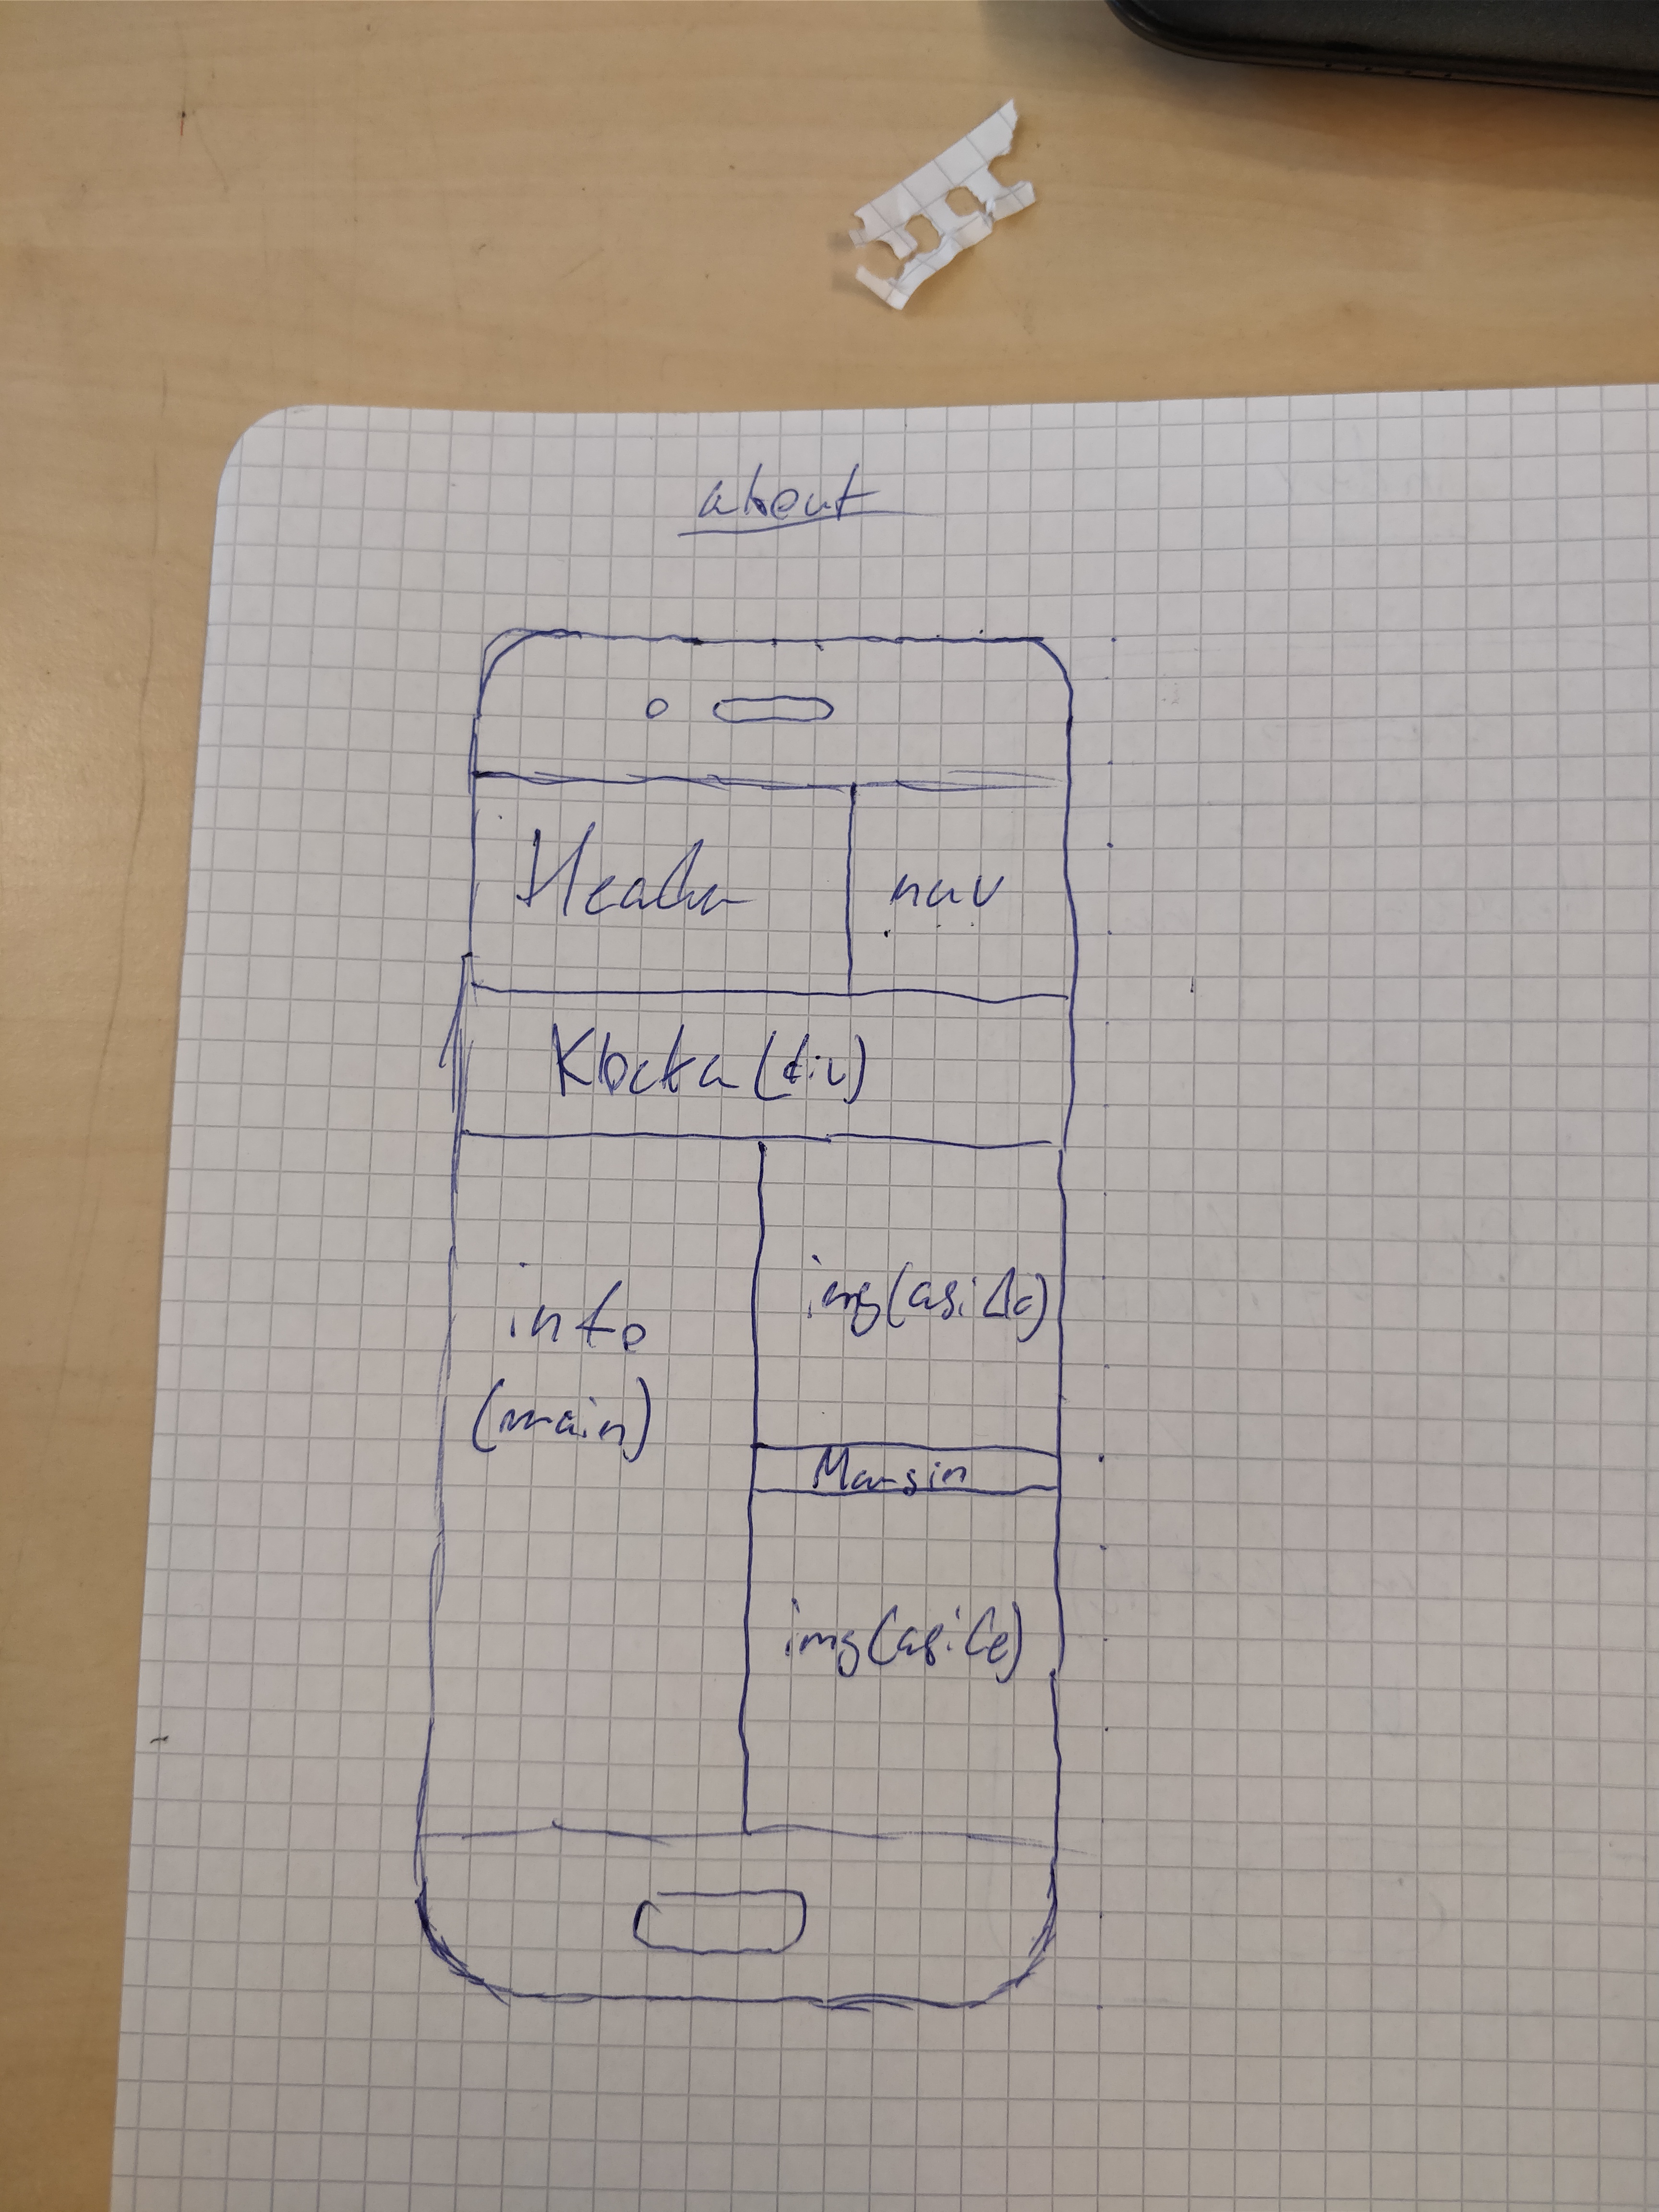 about
Header
nav
Klocka (div)
info
(main)
img (aside)
Margin
img (aside)